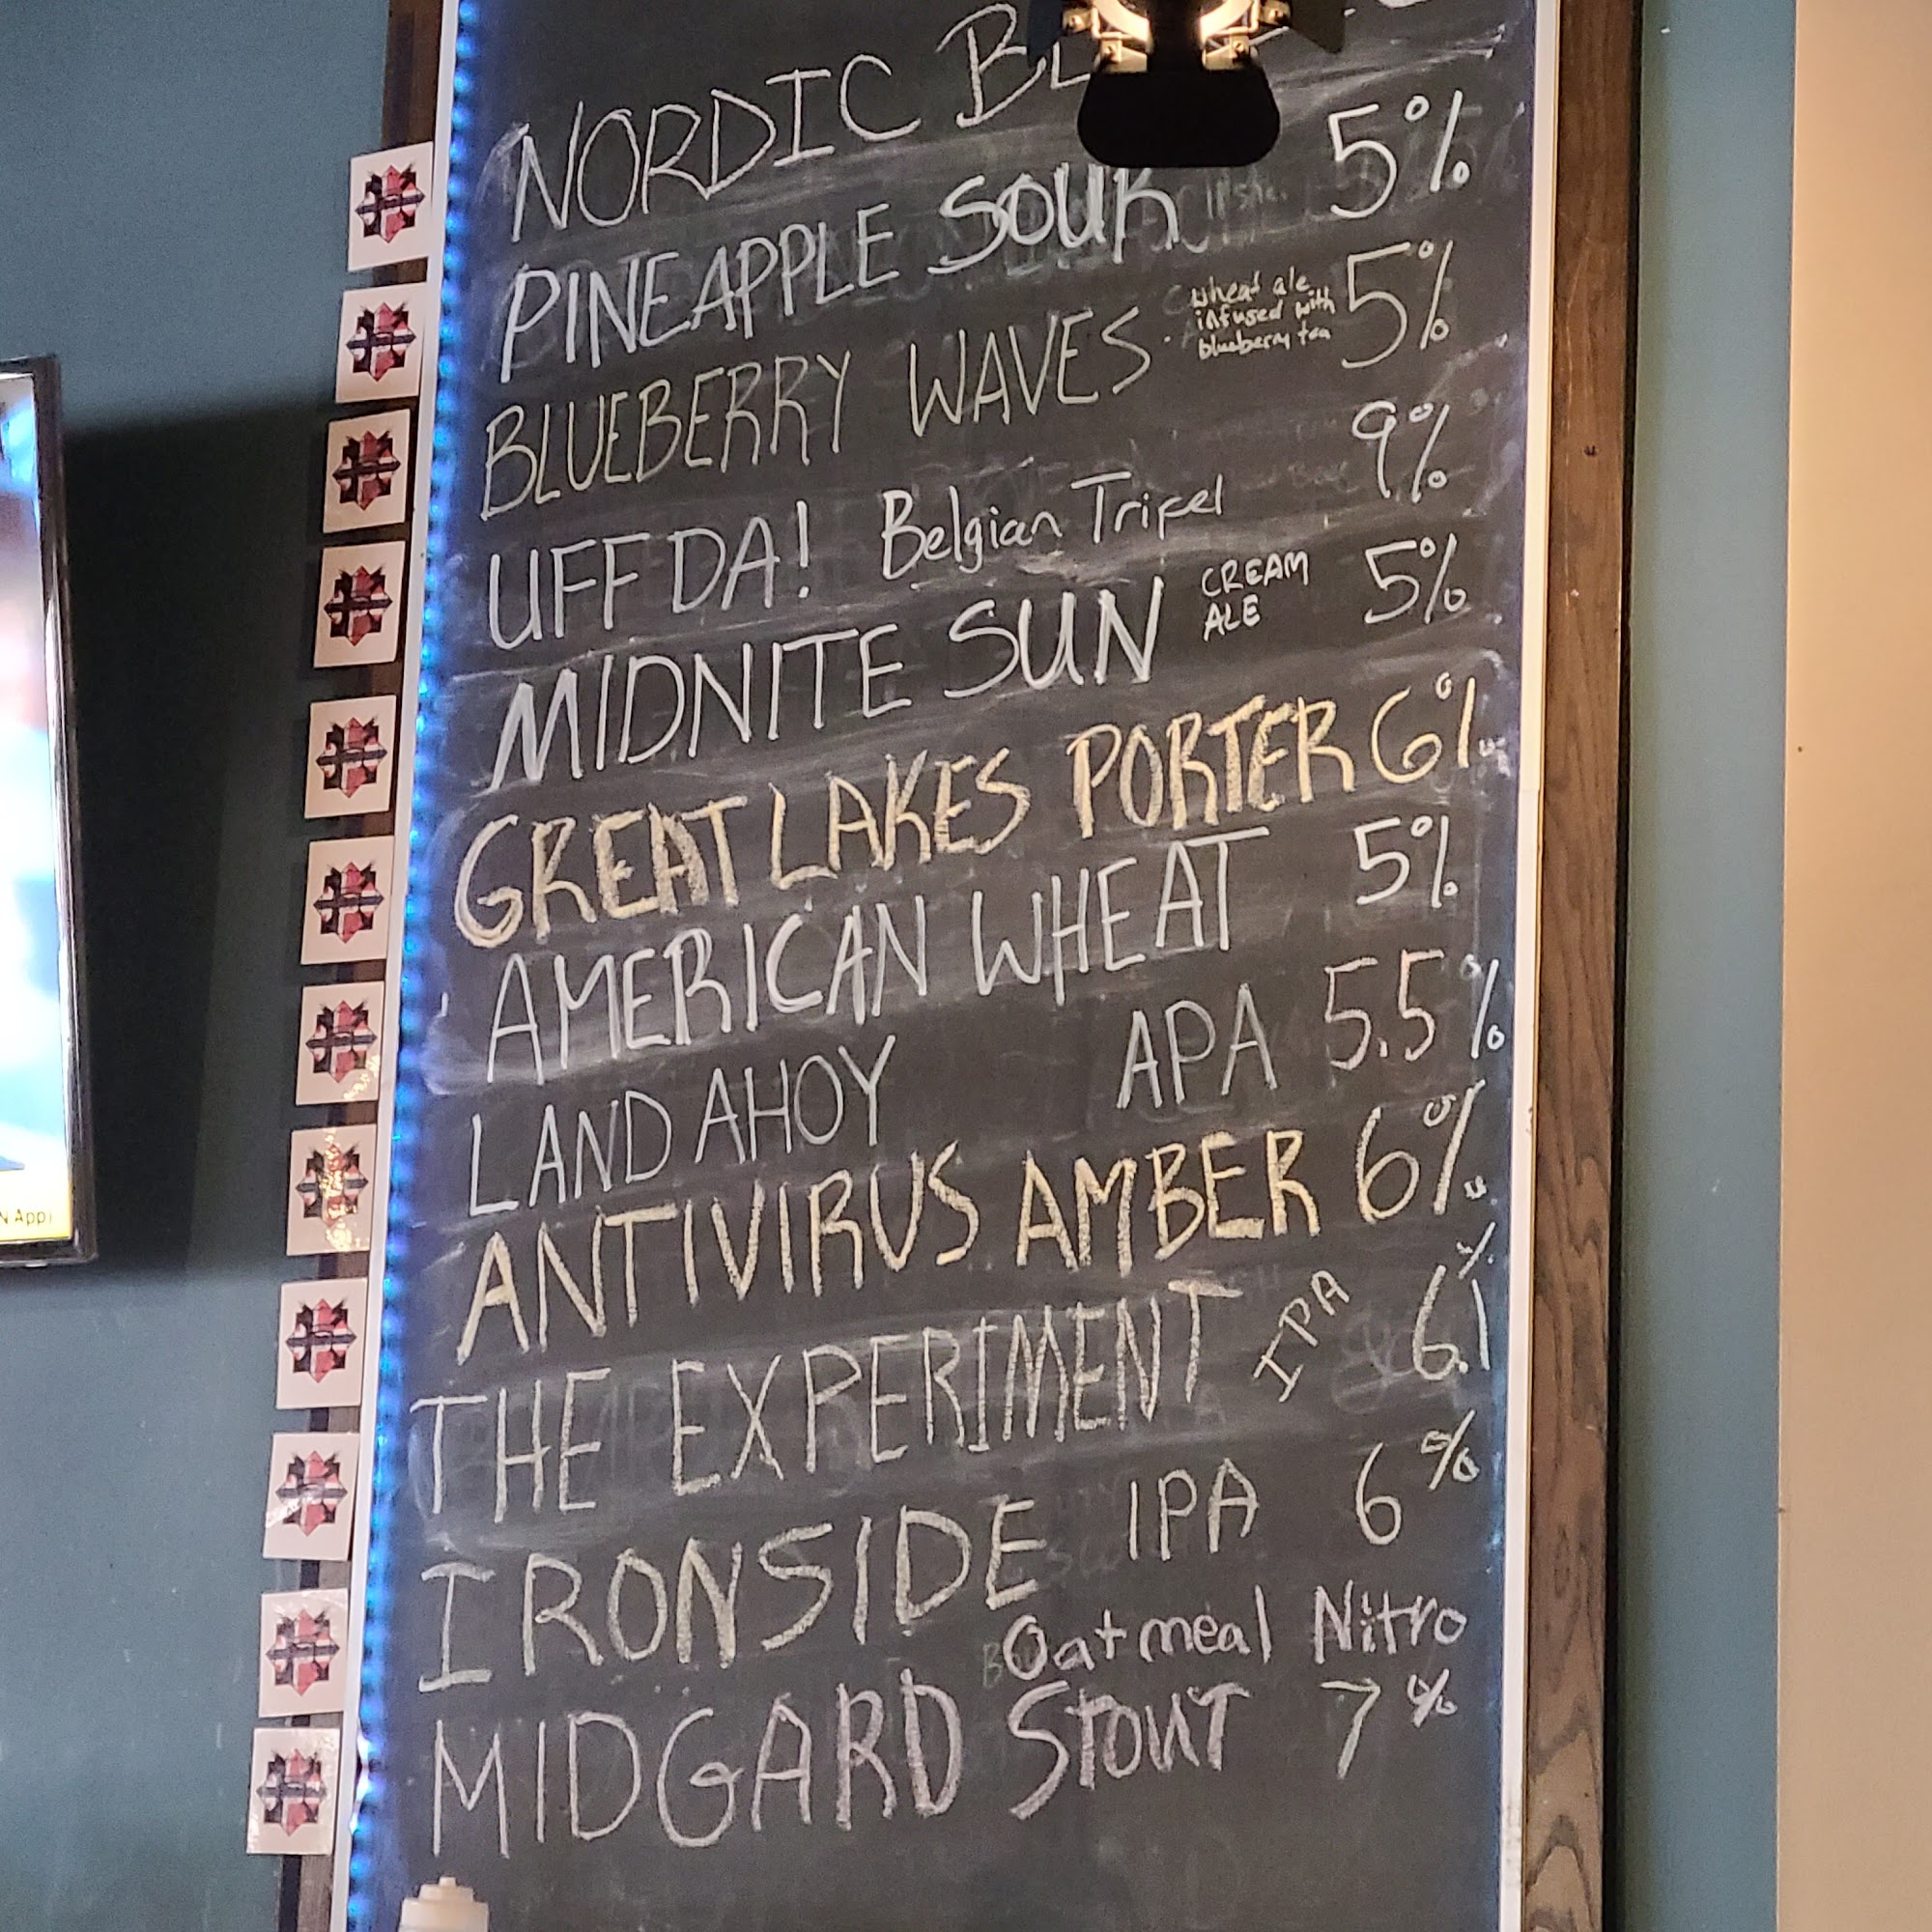 NORDIC
PINEAPPLE SOUR 5%
BLUEBERRY WAVES wheat ale infused with blueberry tea 5%
UFF DA! Belgian Tripel 9%
MIDNITE SUN CREAM ALE 5%
GREAT LAKES PORTER 6%
AMERICAN WHEAT 5%
LAND AHOY APA 5.5%
ANTIVIRUS AMBER 6%
THE EXPERIMENT IPA 6.1%
IRONSIDE IPA 6%
Oatmeal Nitro
MIDGARD STOUT 7%